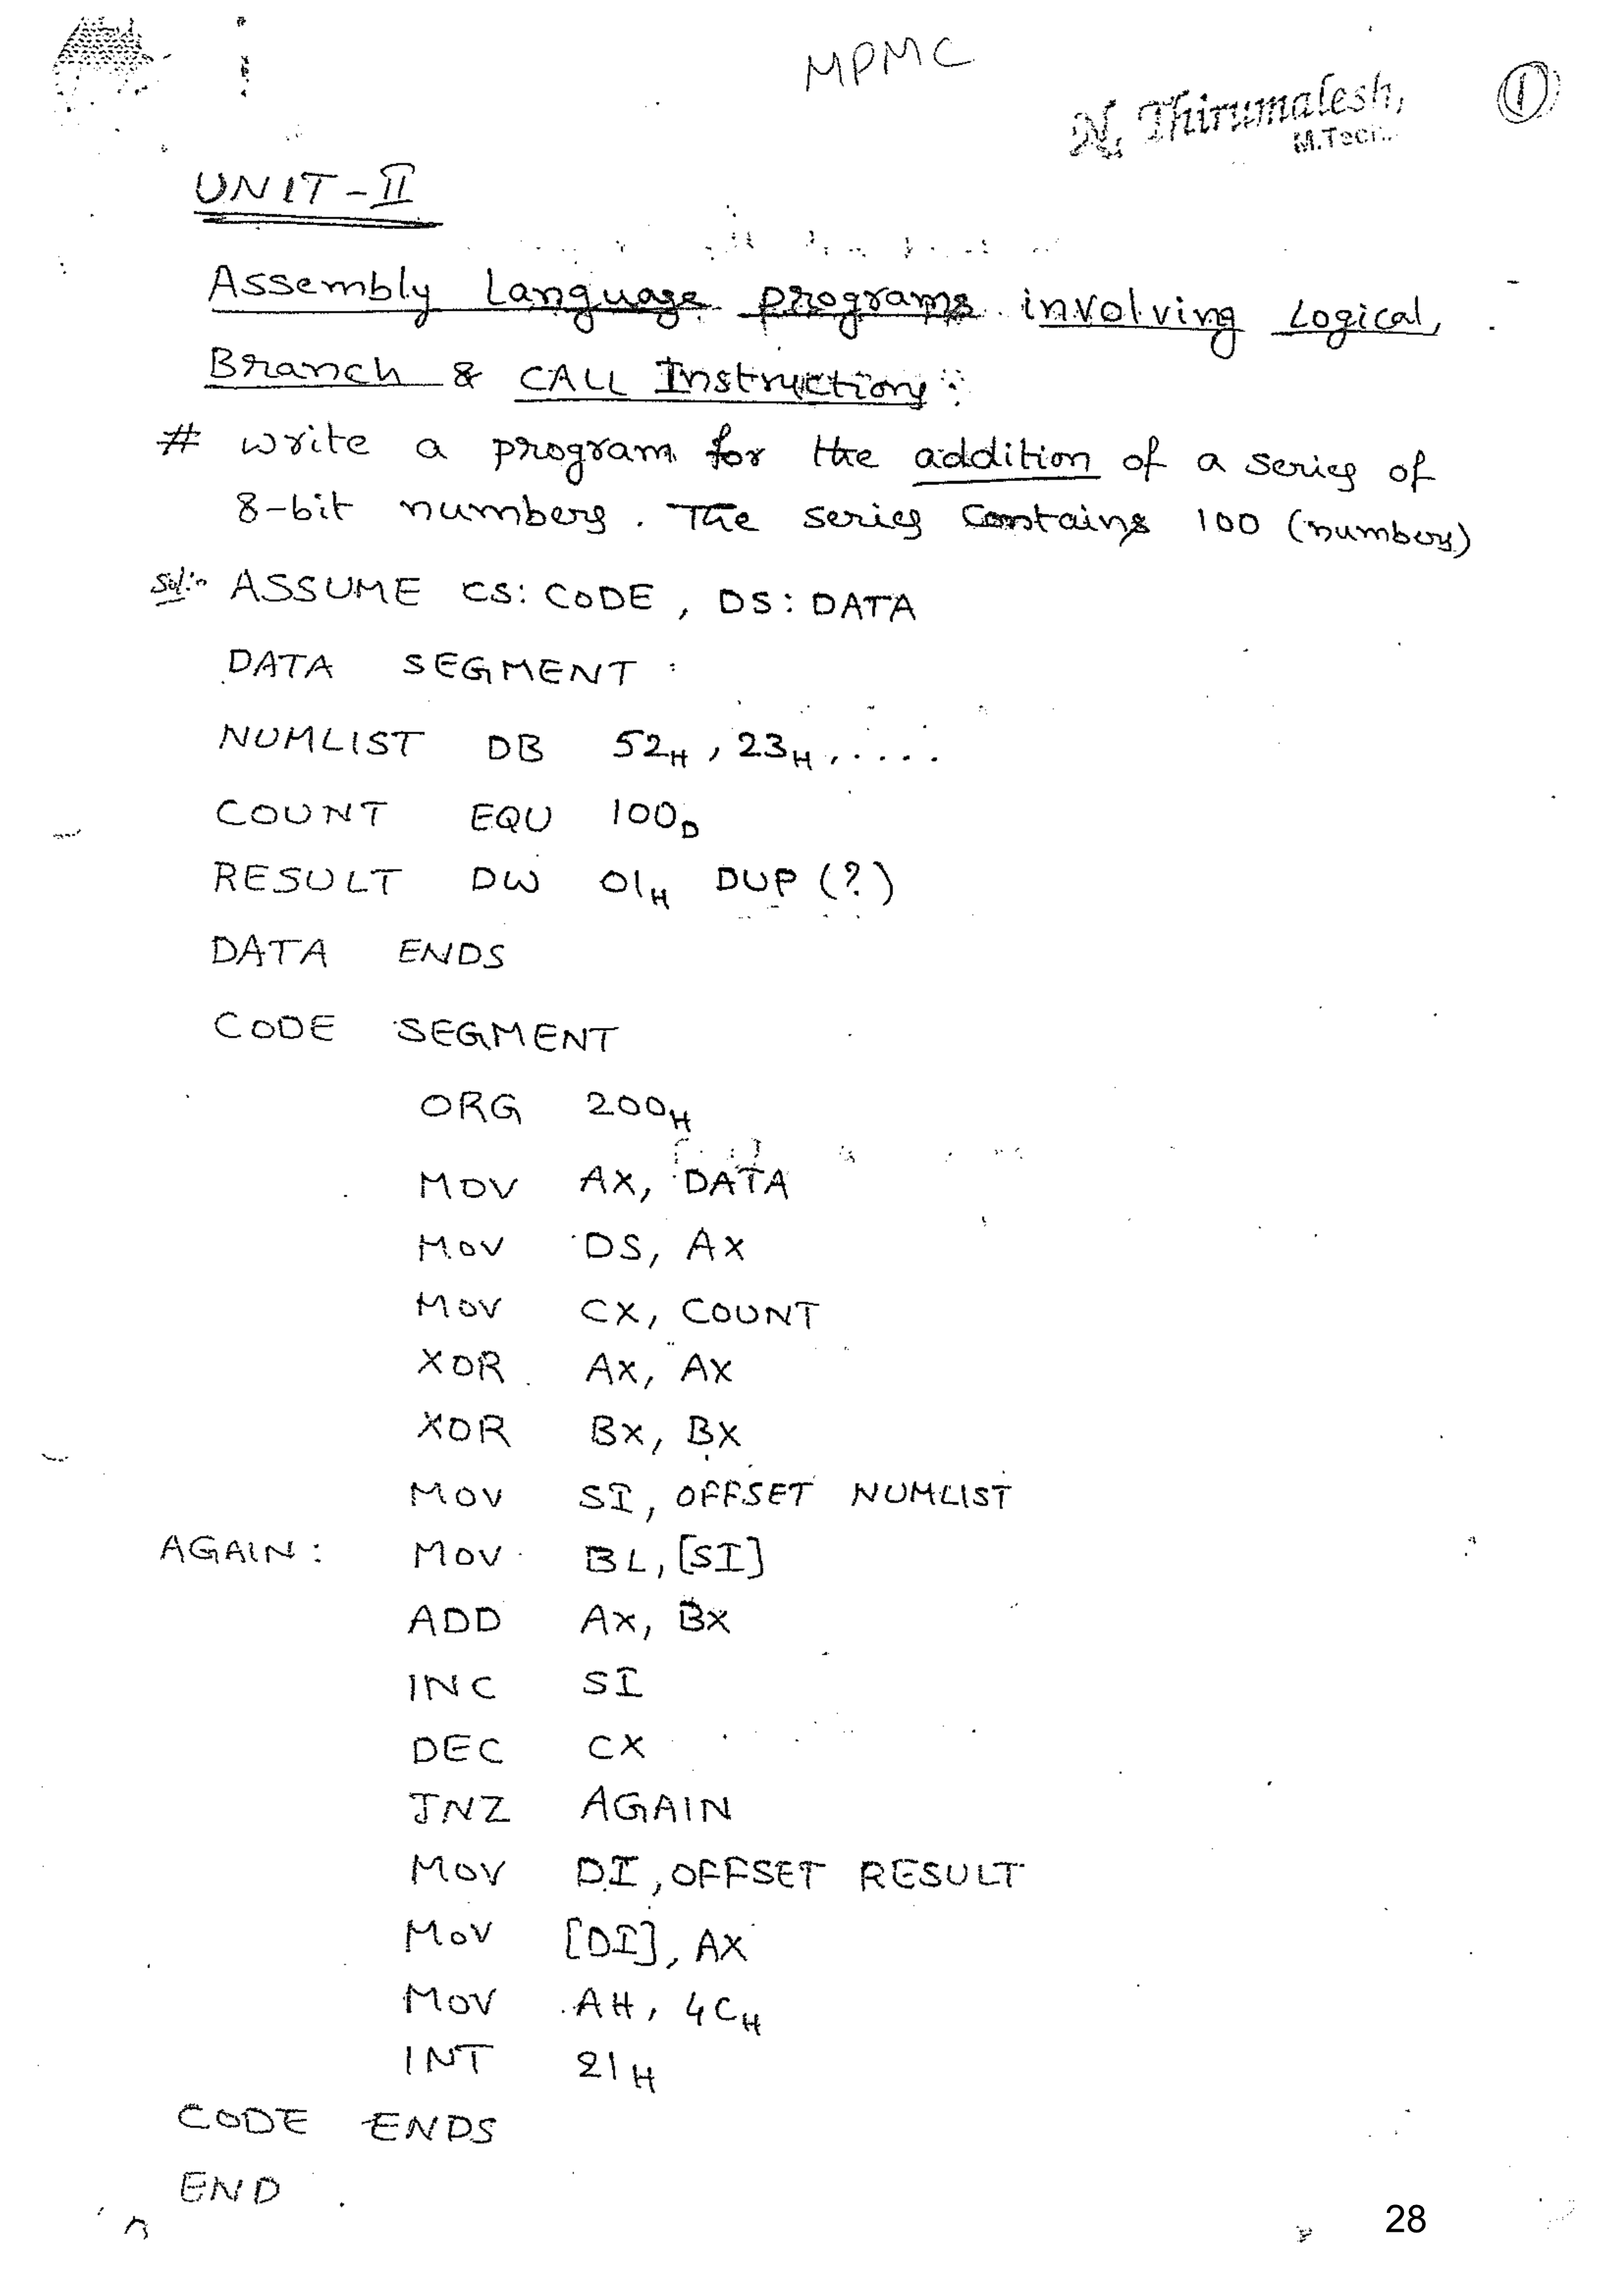 MPMC
N. Thirumalesh,
M.Tech.
1
UNIT-II
Assembly Language programs involving Logical,
Branch & CALL Instructions:
# write a program for the addition of a series of
8-bit numbers. The series contains 100 (numbers)
Sol:- ASSUME CS: CODE, DS: DATA
DATA SEGMENT
NUMLIST DB 52H, 23H, ....
COUNT EQU 100D
RESULT DW 01H DUP (?)
DATA ENDS
CODE SEGMENT
ORG 200H
MOV AX, DATA
MOV DS, AX
MOV CX, COUNT
XOR AX, AX
XOR BX, BX
MOV SI, OFFSET NUMLIST
AGAIN: MOV BL, [SI]
ADD AX, BX
INC SI
DEC CX
JNZ AGAIN
MOV DI, OFFSET RESULT
MOV [DI], AX
MOV AH, 4CH
INT 21H
CODE ENDS
END
28